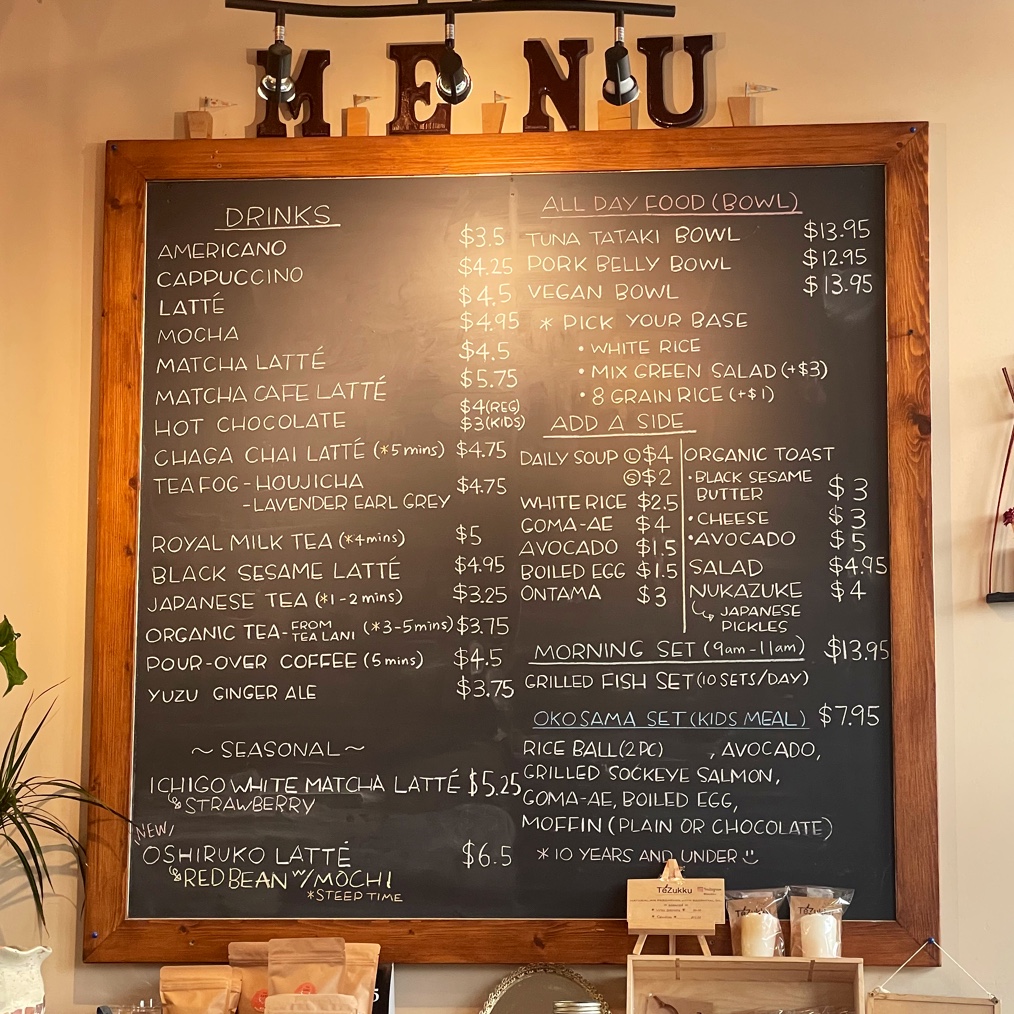 MENU
DRINKS
AMERICANO $3.5
CAPPUCCINO $4.25
LATTÉ $4.5
MOCHA $4.95
MATCHA LATTÉ $4.5
MATCHA CAFE LATTÉ $5.75
HOT CHOCOLATE $4(REG) $3(KIDS)
CHAGA CHAI LATTÉ (*5mins) $4.75
TEAFOG - HOUJICHA $4.75
- LAVENDER EARL GREY
ROYAL MILK TEA (*4mins) $5
BLACK SESAME LATTÉ $4.95
JAPANESE TEA (*1-2mins) $3.25
ORGANIC TEA - FROM TEA LANI (*3-5mins) $3.75
POUR-OVER COFFEE (5mins) $4.5
YUZU GINGER ALE $3.75
~ SEASONAL ~
ICHIGO WHITE MATCHA LATTÉ $5.25
STRAWBERRY
NEW!
OSHIRUKO LATTÉ $6.5
REDBEAN W/ MOCHI
*STEEP TIME
ALL DAY FOOD (BOWL)
TUNA TATAKI BOWL $13.95
PORK BELLY BOWL $12.95
VEGAN BOWL $13.95
* PICK YOUR BASE
• WHITE RICE
• MIX GREEN SALAD (+$3)
• 8 GRAIN RICE (+$1)
ADD A SIDE
DAILY SOUP Ⓛ$4
Ⓢ$2
WHITE RICE $2.5
GOMA-AE $4
AVOCADO $1.5
BOILED EGG $1.5
ONTAMA $3
ORGANIC TOAST
• BLACK SESAME BUTTER $3
• CHEESE $3
• AVOCADO $5
SALAD $4.95
NUKAZUKE $4
JAPANESE
PICKLES
MORNING SET (9am-11am) $13.95
GRILLED FISH SET (10 SETS/DAY)
OKOSAMA SET (KIDS MEAL) $7.95
RICE BALL (2PC) , AVOCADO,
GRILLED SOCKEYE SALMON,
GOMA-AE, BOILED EGG,
MOFFIN (PLAIN OR CHOCOLATE)
* 10 YEARS AND UNDER
TōZukku
TōZukku
TōZukku